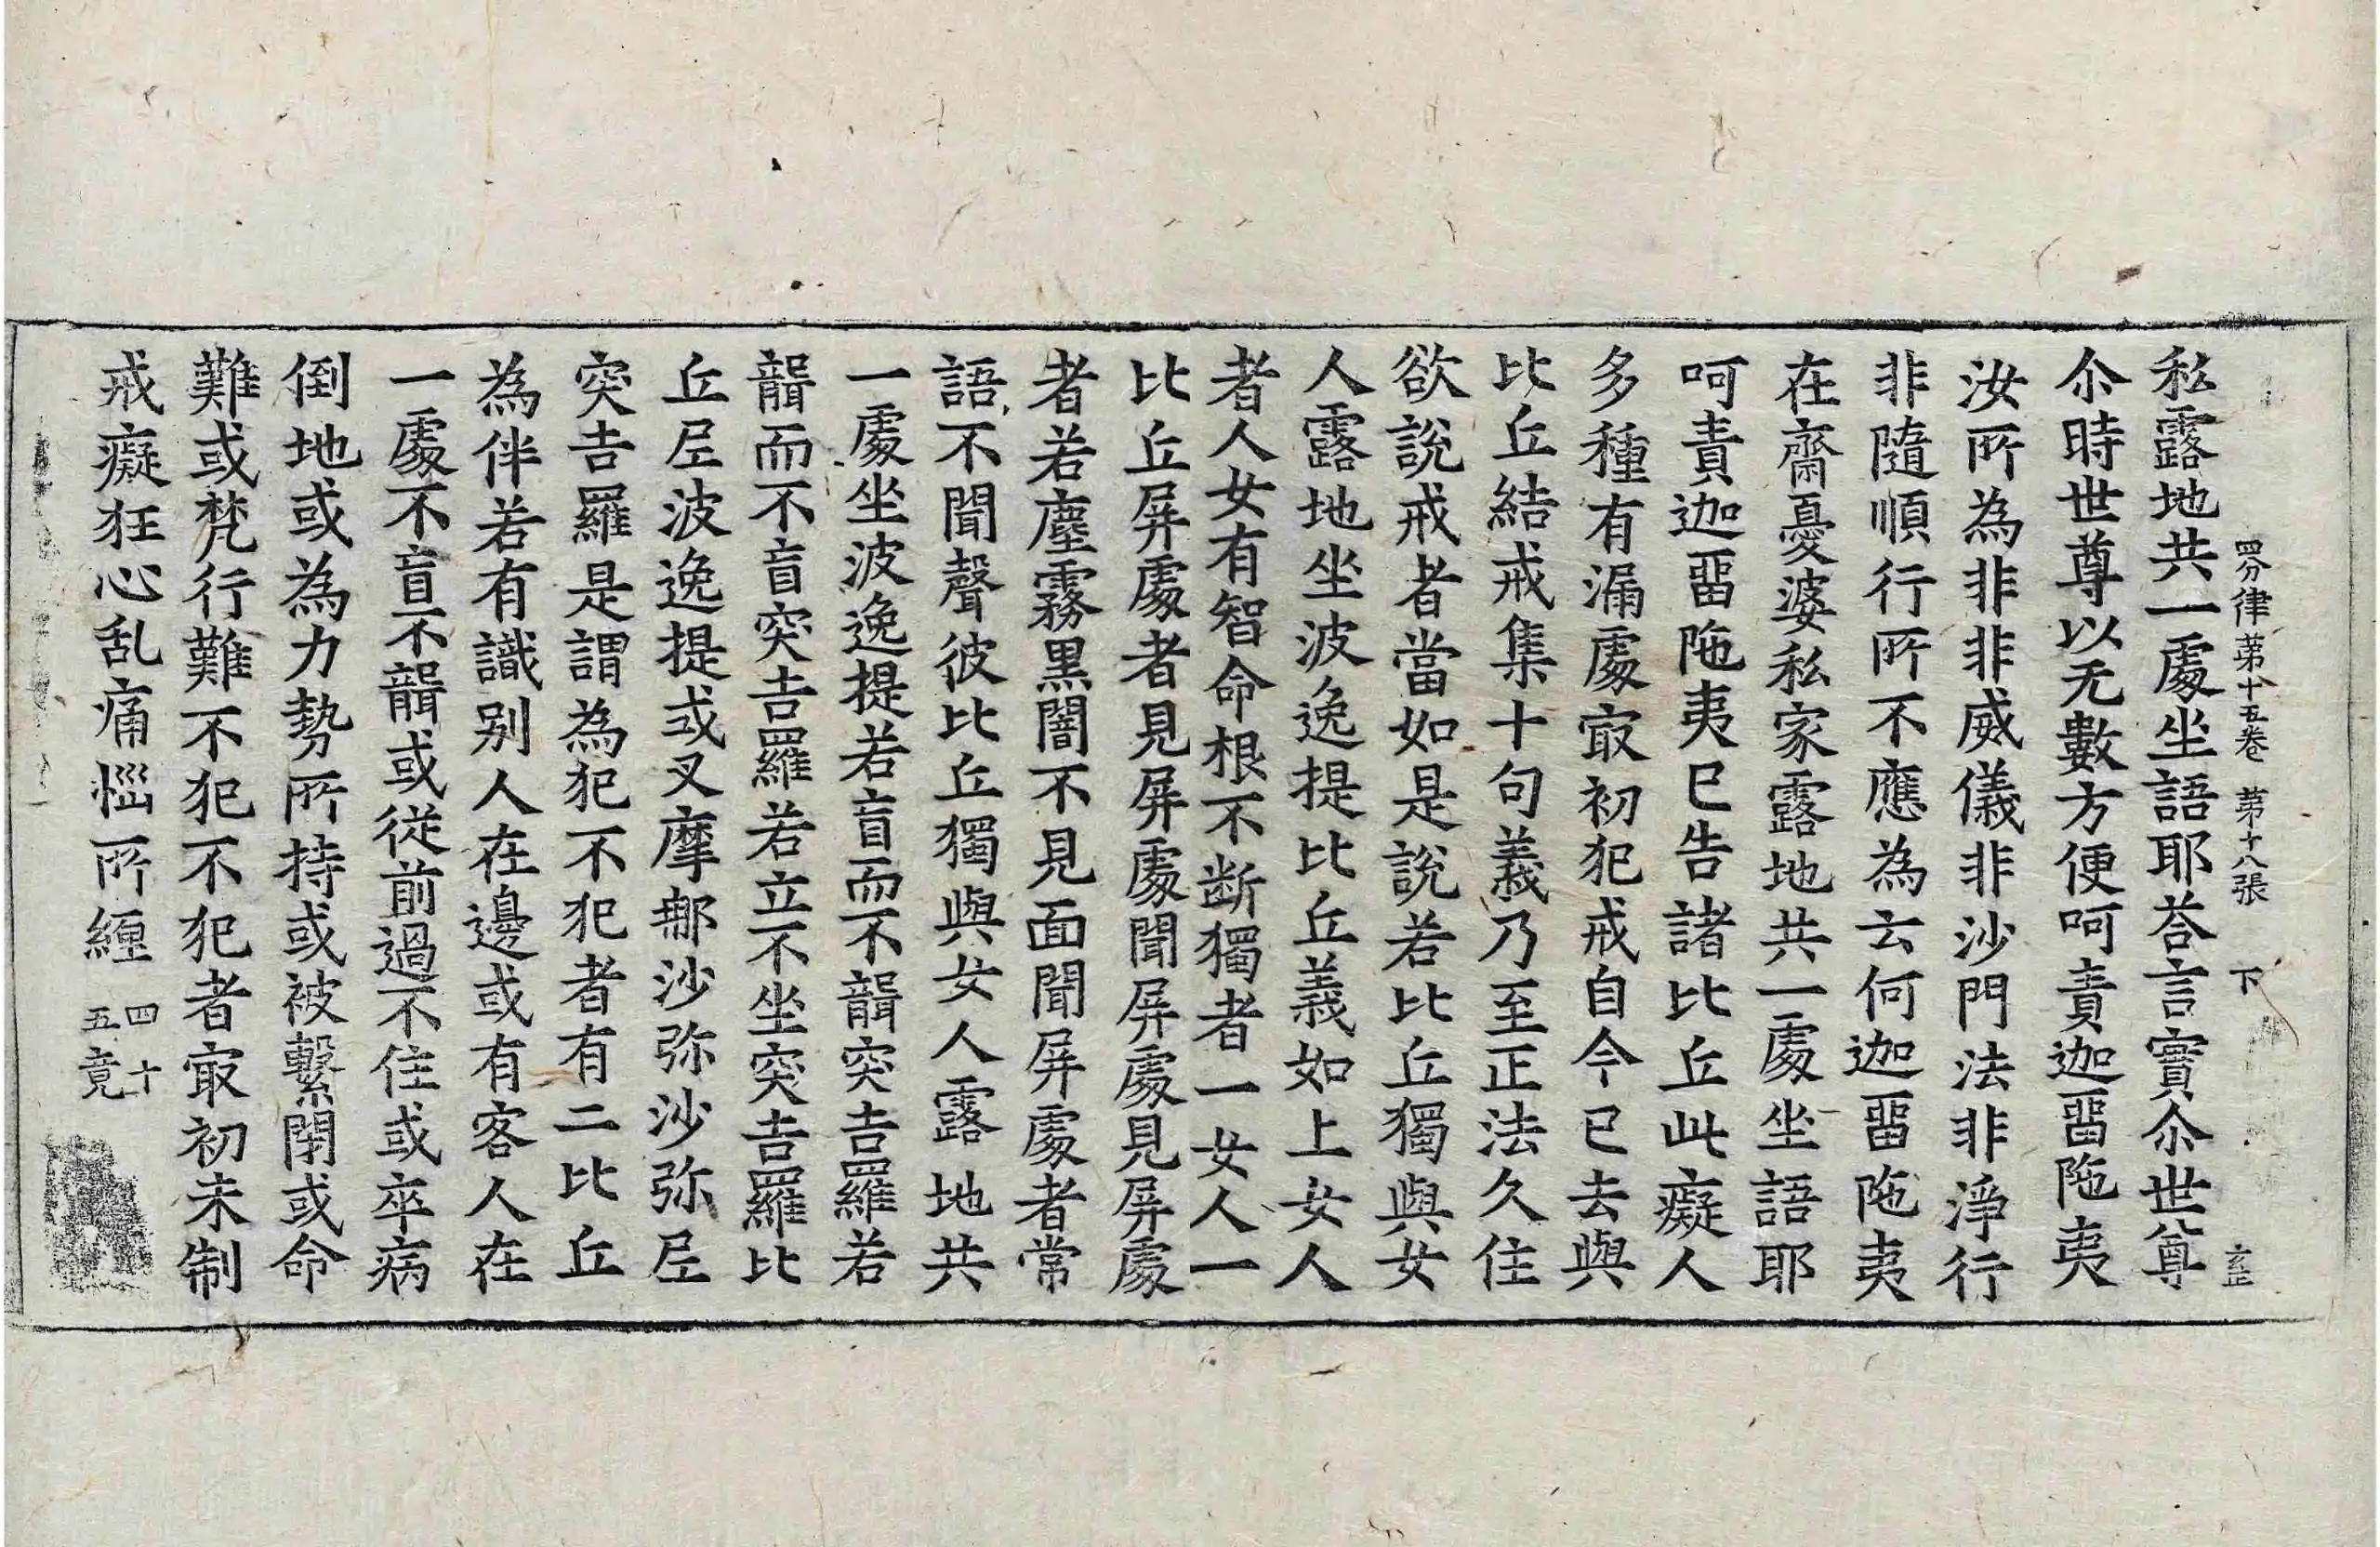 四分律苐十五卷 苐十八張 下
私露地共一處坐語耶荅言實尒世尊
尒時世尊以无數方便呵責迦畱陁夷
汝所為非非威儀非沙門法非淨行
非隨順行所不應為云何迦畱陁夷
在齋憂婆私家露地共一處坐語耶
呵責迦畱陁夷已告諸比丘此癡人
多種有漏處㝡初犯戒自今已去與
比丘結戒集十句義乃至正法久住
欲說戒者當如是說若比丘獨與女
人露地坐波逸提比丘義如上女人
者人女有智命根不断獨者一女人一
比丘屏處者見屏處聞屏處見屏處
者若塵霧黑闇不見面聞屏處者常
語不聞聲彼比丘獨與女人露地共
一處坐波逸提若盲而不聾突吉羅若
聾而不盲突吉羅若立不坐突吉羅比
丘尼波逸提或叉摩那沙弥沙弥尼
突吉羅是謂為犯不犯者有二比丘
為伴若有識別人在邊或有客人在
一處不盲不聾或從前過不住或卒病
倒地或為力勢所持或被繫閇或命
難或梵行難不犯不犯者㝡初未制
戒癡狂心乱痛惱所纏 四十
五竟